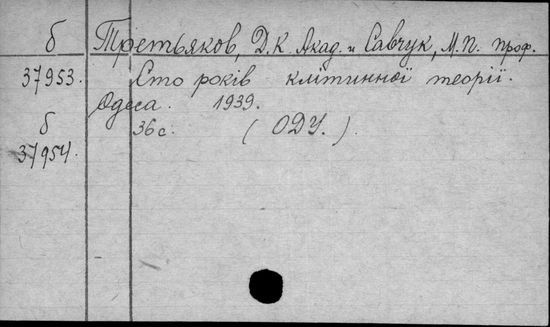 б Третьяков, Д.К. Акад. и Савчук, М.П. проф.
37953. Сто років клітинної теорії.
Одеса. 1939.
б 36 с. (ОДУ.).
37954.